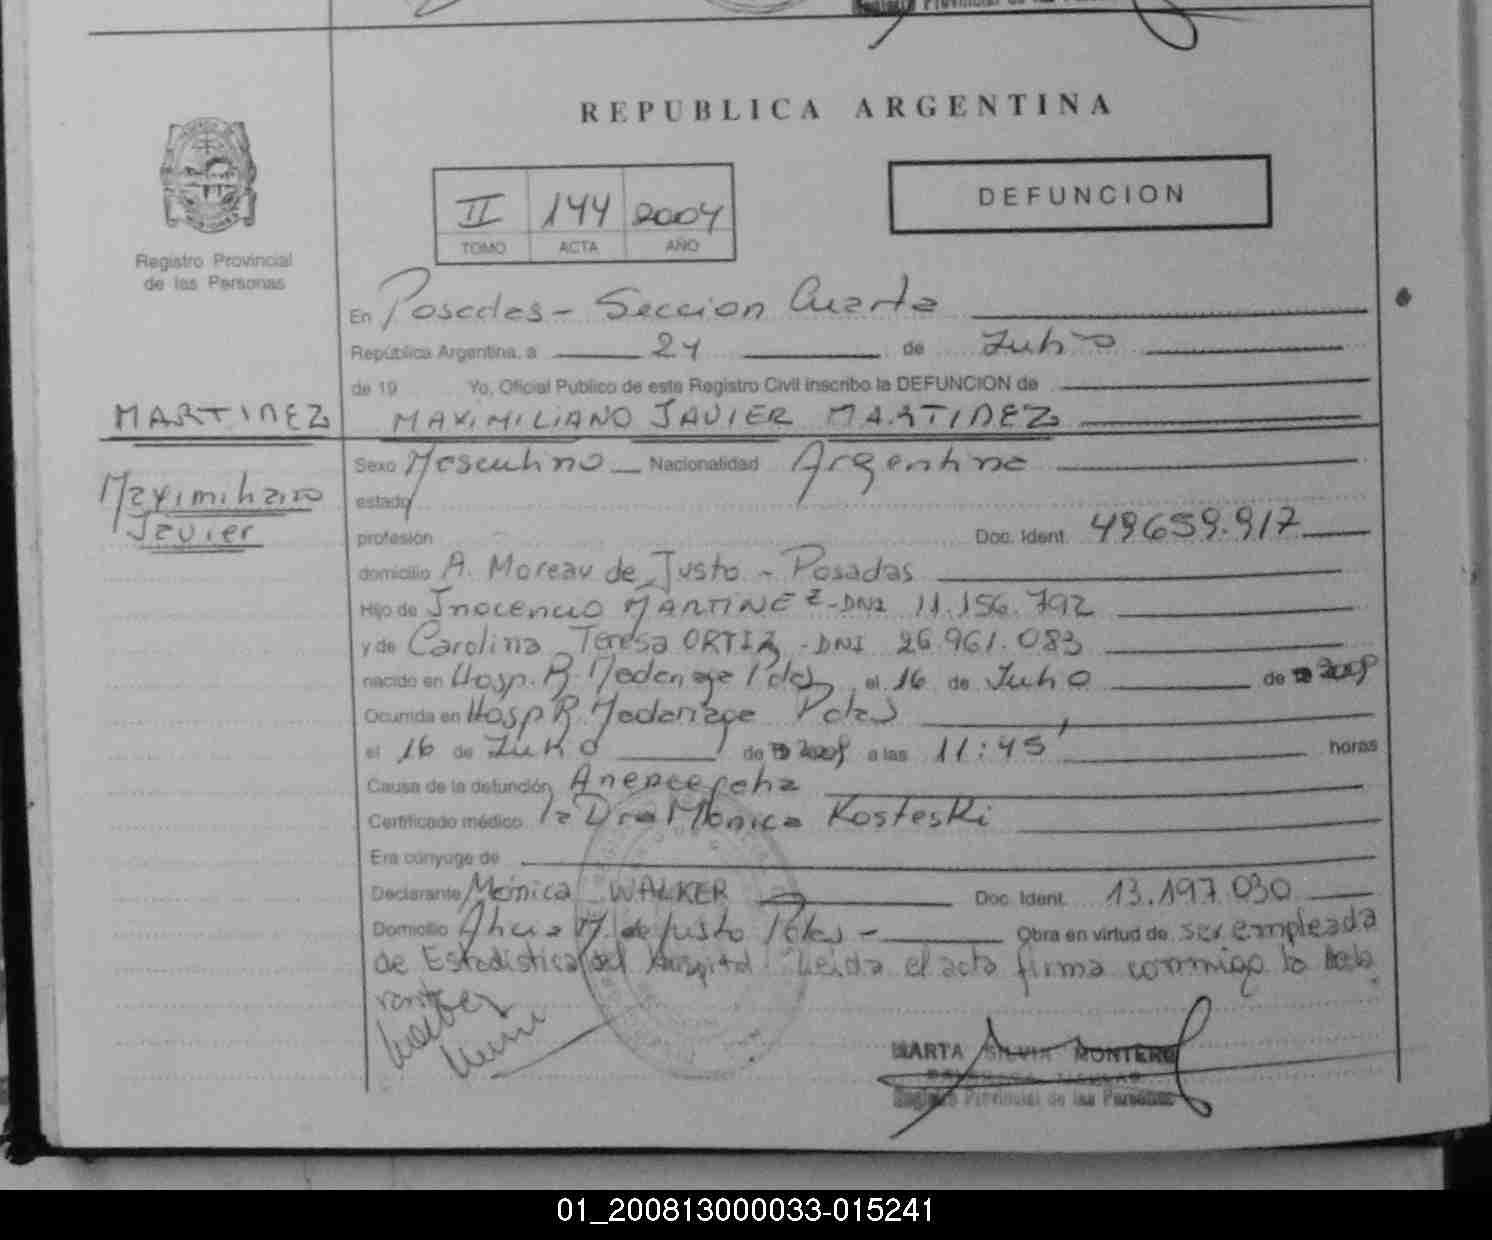 REPUBLICA ARGENTINA
DEFUNCION
II 144 2004
TOMO ACTA AÑO
Registro Provincial
de las Personas
En Posadas - Seccion Cuarta
República Argentina, a 24 de Julio
de 19 Yo, Oficial Publico de este Registro Civil inscribo la DEFUNCION de
MARTINEZ
MAXIMILIANO JAVIER MARTINEZ
Maximiliano
Javier
Sexo Masculino Nacionalidad Argentina
estado
profesión Doc. Ident. 49659.917
domicilio A. Moreau de Justo - Posadas
Hijo de Inocencio MARTINEZ - DNI 11.156.792
y de Carolina Teresa ORTIZ - DNI 26.961.083
nacido en Hosp. R. Madariaga Pdas, el 16 de Julio de
Ocurrida en Hosp R. Madariaga Pdas
el 16 de Julio de a las 11:45 horas
Causa de la defunción Anencefalia
Certificado médico la Dra Monica Kosteski
Era cónyuge de
Declarante Mónica WALKER Doc. Ident. 13.197.030
Domicilio Alicia M. de Justo Pdas - Obra en virtud de ser empleada
de Estadistica del Hospital. Leida el acta firma conmigo la
MARTA SILVIA MONTERO
Registro Provincial de las Personas
01_200813000033-015241